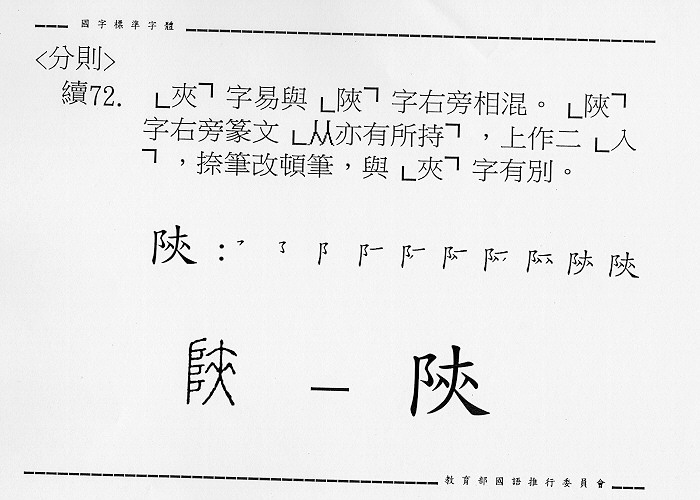 國字標準字體
<分則>
續72. 「夾」字易與「陝」字右旁相混。「陝」
字右旁篆文「从亦有所持」，上作二「入
」，捺筆改頓筆，與「夾」字有別。
陝：阝 陝
陝 — 陝
教育部國語推行委員會